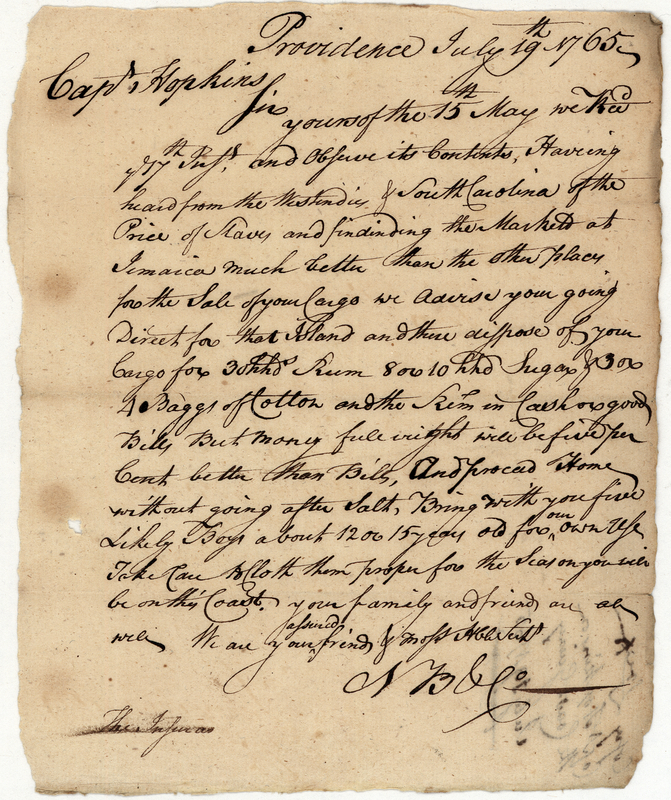 Providence July 19th 1765
Capt Hopkins
Sir
yours of the 15th May we Recd
ye 17th Inst. and Observe its Contents, Having
heard from the Westindies & South Carolina of the
Price of Slaves and findinding the Markett at
Jemaica much better than the other places
for the Sale of your Cargo we advise your going
Direct for that Island and there dispose of your
Cargo for 30 hhds Rum 8 or 10 hhd Sugar & 3 or
4 Baggs of Cotton and the Rem in Cash or good
Bills But money full weight will be five per
Cent better than Bills, And proceed Home
without going after Salt, Bring with you five
Likely Boys about 12 or 15 years old for our own Use
Take Care & Cloth them proper for the Season you will
be on this Coast. your family and friends are all
well We are your assured friends & most Hble Servts
N B & Co
The Insurers